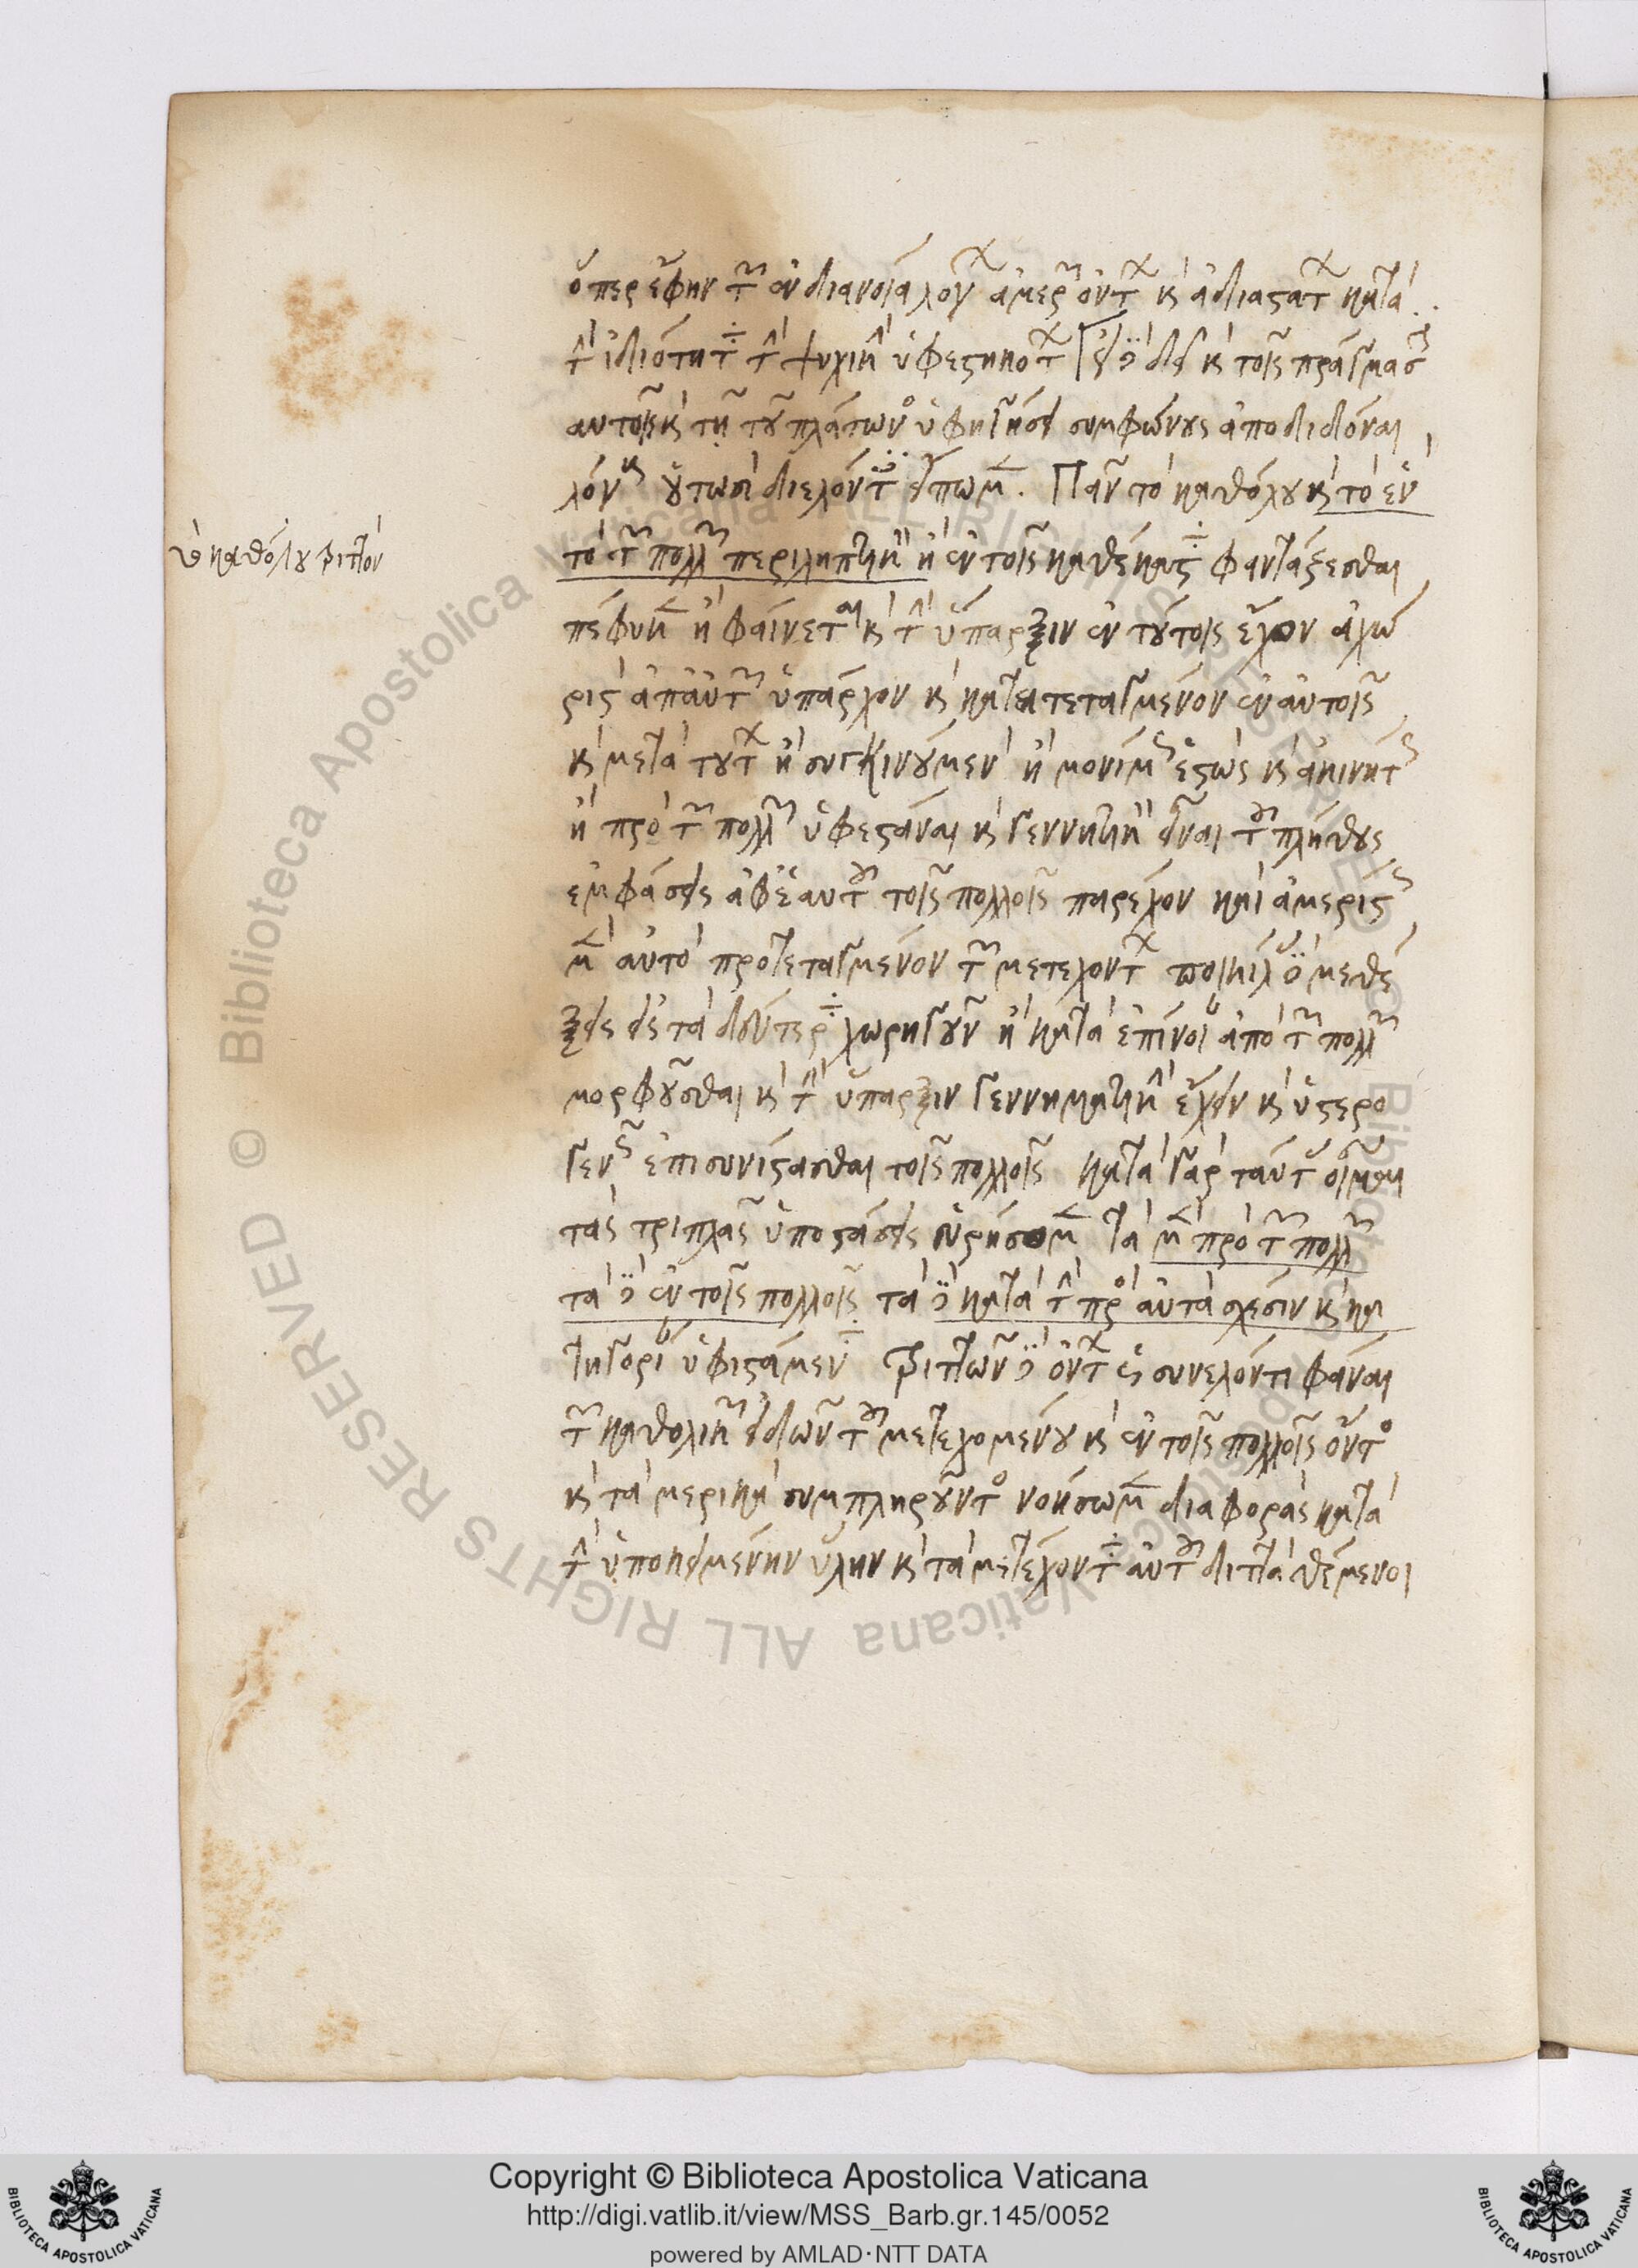 ὅπερ ἔφην τῶν ἐν διανοίᾳ λόγων ἀμερῶν ὄντων καὶ ἀδιαστάτων κατὰ
τὴν ἰδιότητα τὴν ψυχικὴν ὑφεστηκότων εἰ δὲ δεῖ καὶ τοῖς πράγμασιν
αὐτοῖς καὶ τῇ τοῦ πλάτωνος ὑφηγήσει συμφώνους ἀποδιδόναι
λόγους οὑτωσὶ διελόντες εἴπωμεν. Πᾶν τὸ καθόλου καὶ τὸ ἓν
τὸ τῶν πολλῶν περιληπτικὸν ἢ ἐν τοῖς καθέκαστα φαντάζεσθαι
πέφυκεν ἢ φαίνεται καὶ τὴν ὕπαρξιν ἐν τούτοις ἔχον ἀχώ
ριστον ἀπ' αὐτῶν ὑπάρχον καὶ κατατεταγμένον ἐν αὐτοῖς
καὶ μετὰ τούτων ἢ συγκινούμενον ἢ μονίμως ἑστὼς καὶ ἀκινήτως
ἢ πρὸ τῶν πολλῶν ὑφεστάναι καὶ γεννητικὸν εἶναι τοῦ πλήθους
ἐμφάσεις ἀφ' ἑαυτοῦ τοῖς πολλοῖς παρέχον καὶ ἀμερίστως
μὲν αὐτὸ προτεταγμένον τῶν μετεχόντων ποικίλας δὲ μεθέ
ξεις εἰς τὰ δεύτερα χορηγοῦν ἢ κατὰ ἐπίνοιαν ἀπὸ τῶν πολλῶν
μορφοῦσθαι καὶ τὴν ὕπαρξιν γεννηματικὴν ἔχειν καὶ ὑστερο
γενῶς ἐπισυνίστασθαι τοῖς πολλοῖς κατὰ γὰρ ταύτας οἶμαι
τὰς τριπλᾶς ὑποστάσεις εὑρήσομεν τὰ μὲν πρὸ τῶν πολλῶν
τὰ δὲ ἐν τοῖς πολλοῖς τὰ δὲ κατὰ τὴν πρὸς αὐτὰ σχέσιν καὶ κα
τηγορίαν ὑφιστάμενα τριττῶν δὲ ὄντων ὡς συνελόντι φάναι
τῶν καθολικῶν εἰδῶν τοῦ μετεχομένου καὶ ἐν τοῖς πολλοῖς ὄντος
καὶ τὰ μερικὰ συμπληροῦντος νοήσωμεν διαφορὰς κατὰ
τὴν ὑποκειμένην ὕλην καὶ τὰ μετέχοντα αὐτοῦ διττὰ θέμενοι
καθόλου τριττόν